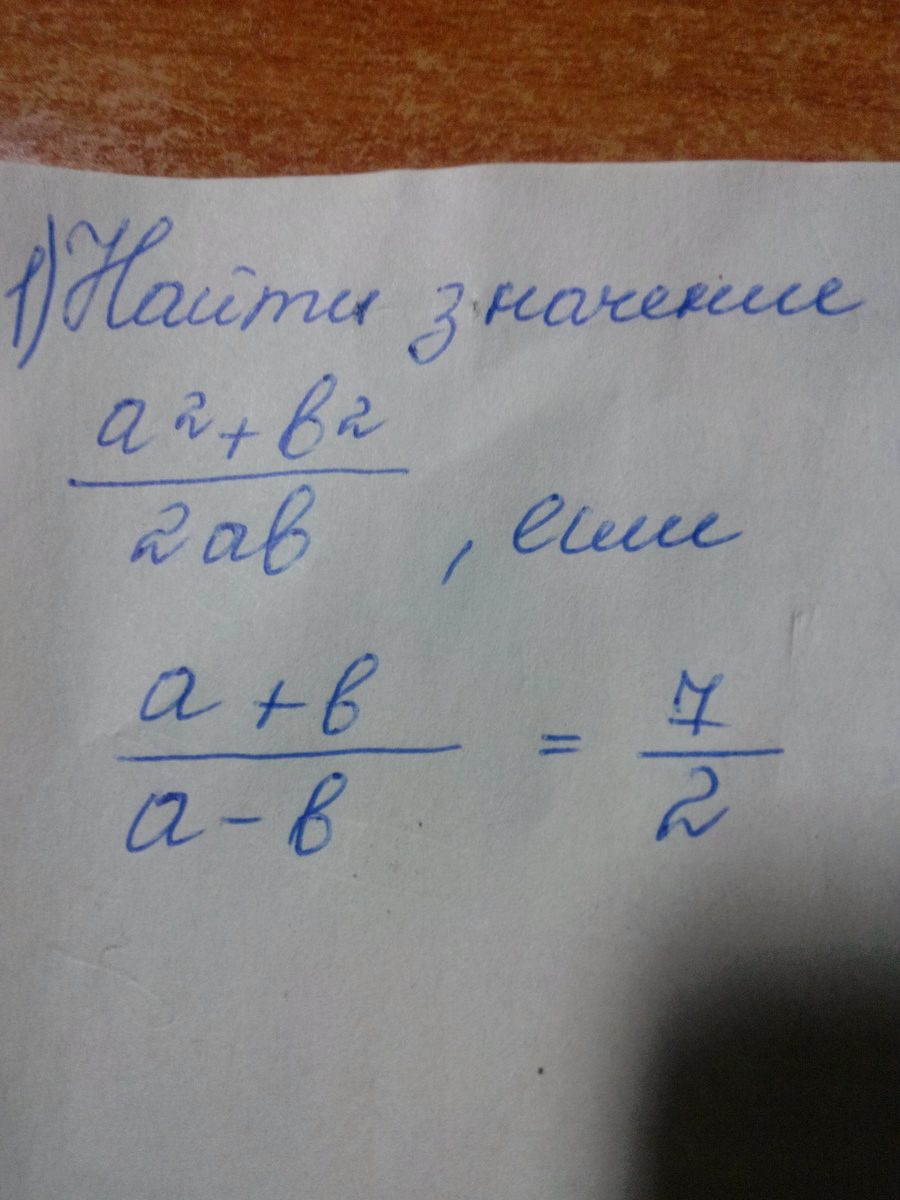 1) Найти значение
a² + b²
2ab , если
a + b = 7
a - b 2